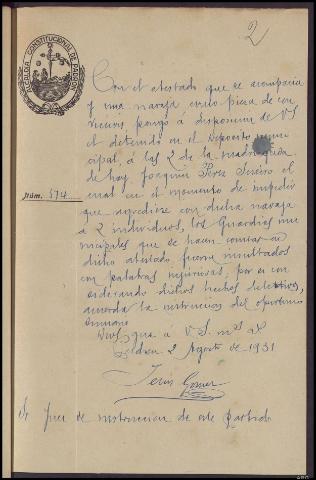 2
ALCALDIA CONSTITUCIONAL DE PADRON
Con el atestado que se acompaña
y una navaja como pieza de con
vicción, pongo á disposición de V.S
el detenido en el Depósito muni
cipal, á las 2 de la madrugada
de hoy, Joaquin Pérez, el
Núm. 574
cual en el momento de impedir
que agrediese con dicha navaja
a 2 individuos, los Guardias mu
nicipales que se hacen constar en
dicho atestado, fueron insultados
con palabras injuriosas, por si con
siderando dichos hechos delictivos,
acuerda la instrucción del oportuno
sumario.
Dios gue a V.S. m.s a.s
Padrón 2 Agosto de 1931
Jesús Gómez
Sr Juez de instrucción de este Partido